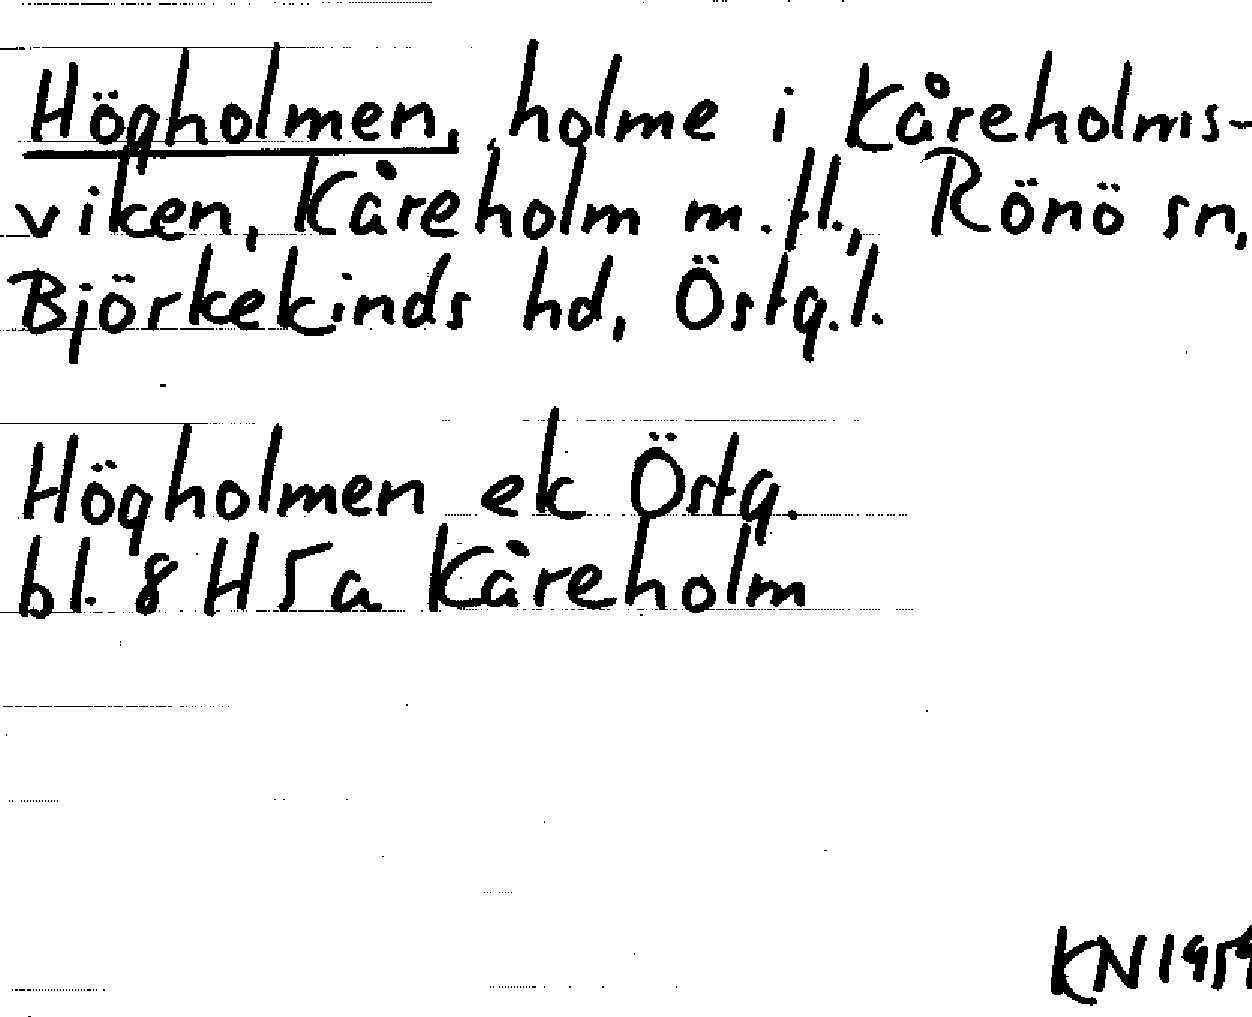 Högholmen, holme i Kåreholms-
viken, Kåreholm m.fl., Rönö sn,
Björkekinds hd, Östg.l.
Högholmen ek Östg.
bl. 8 H 5 a Kåreholm
KN 1959